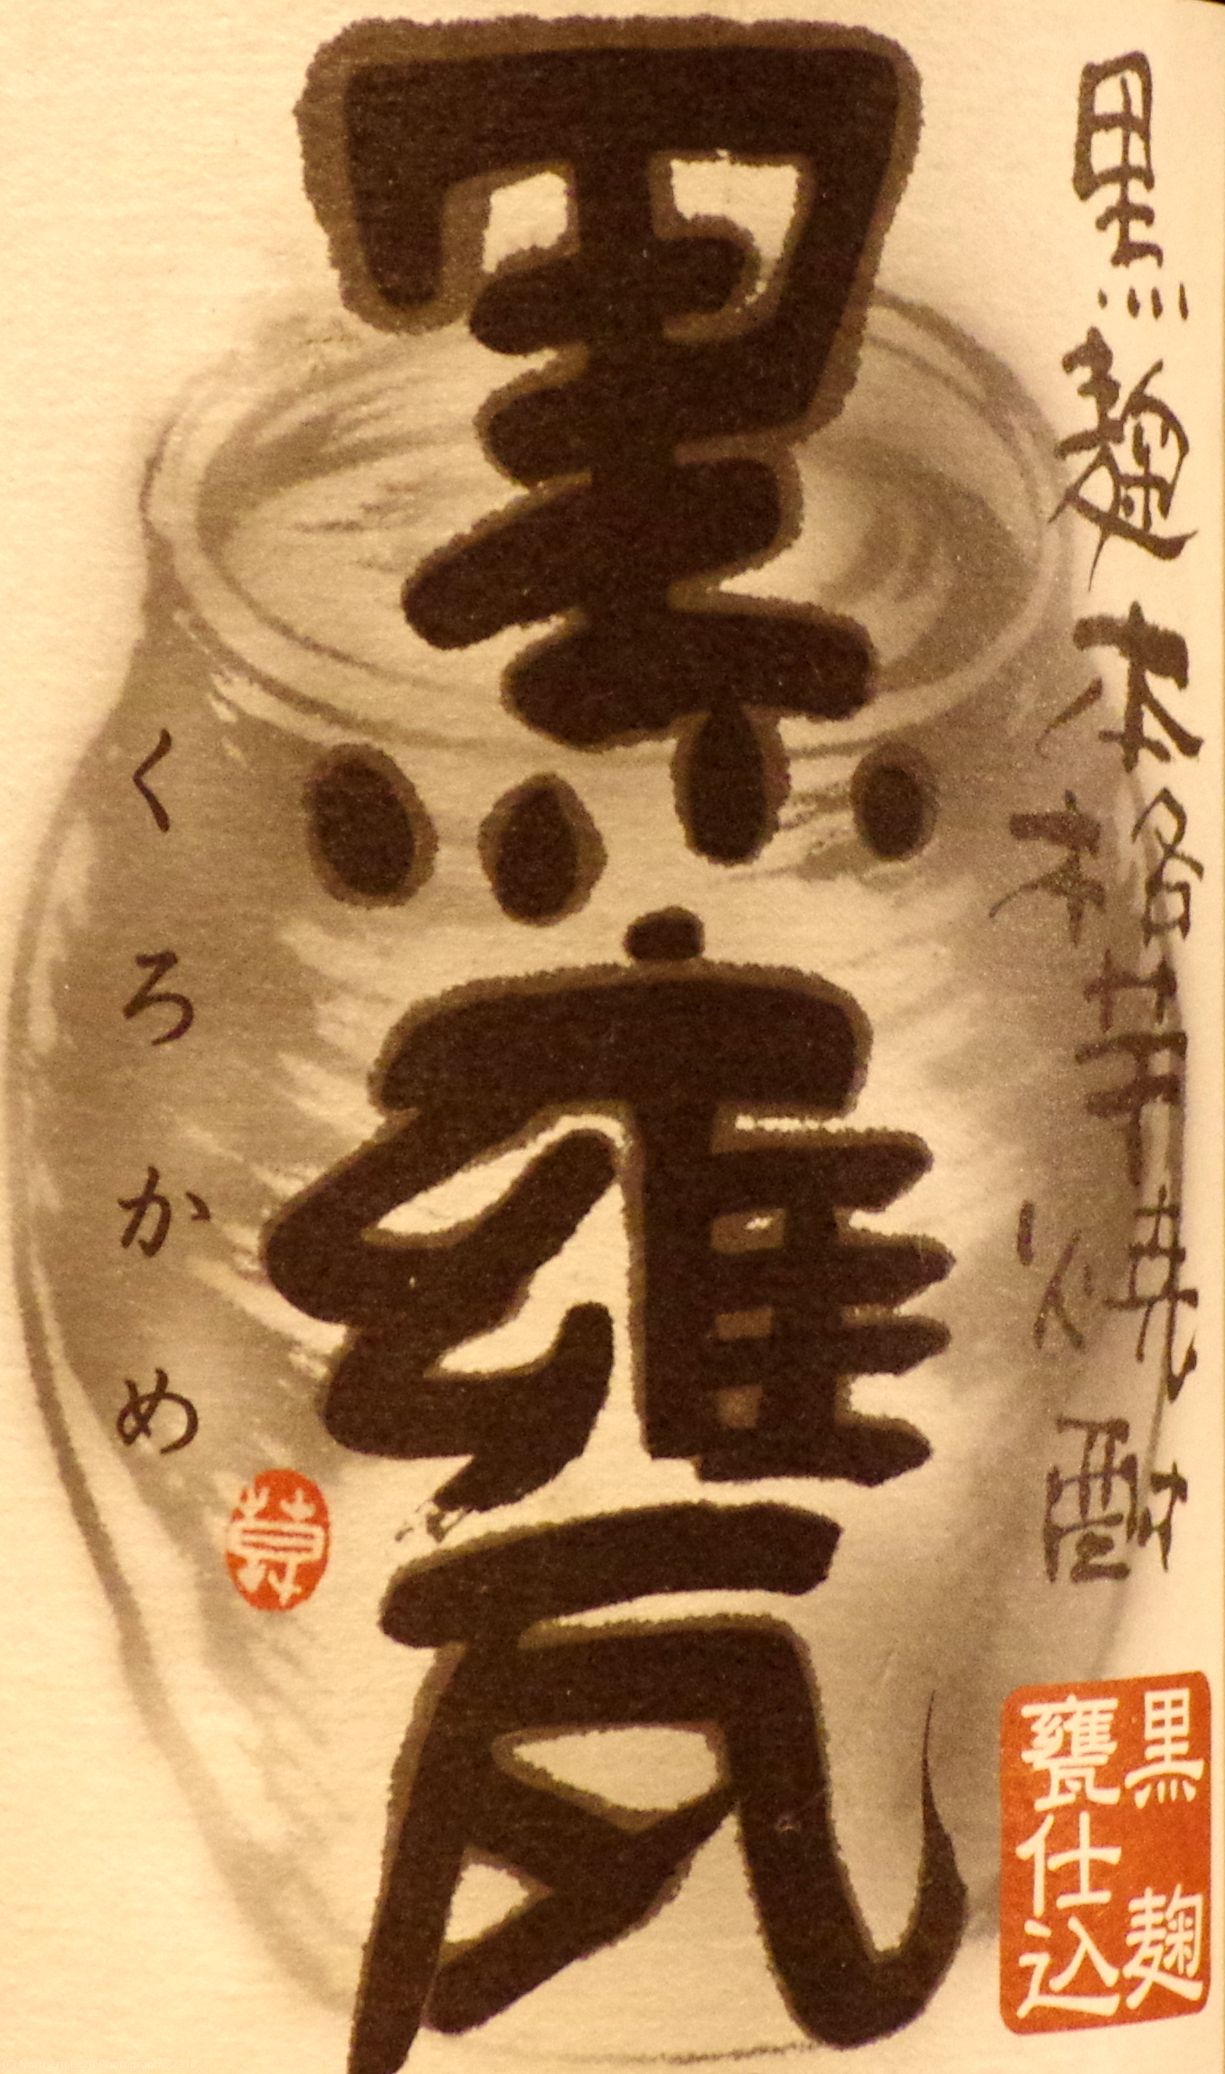 黒麹本格芋焼酎
黒麹
甕仕込
黒甕
くろかめ